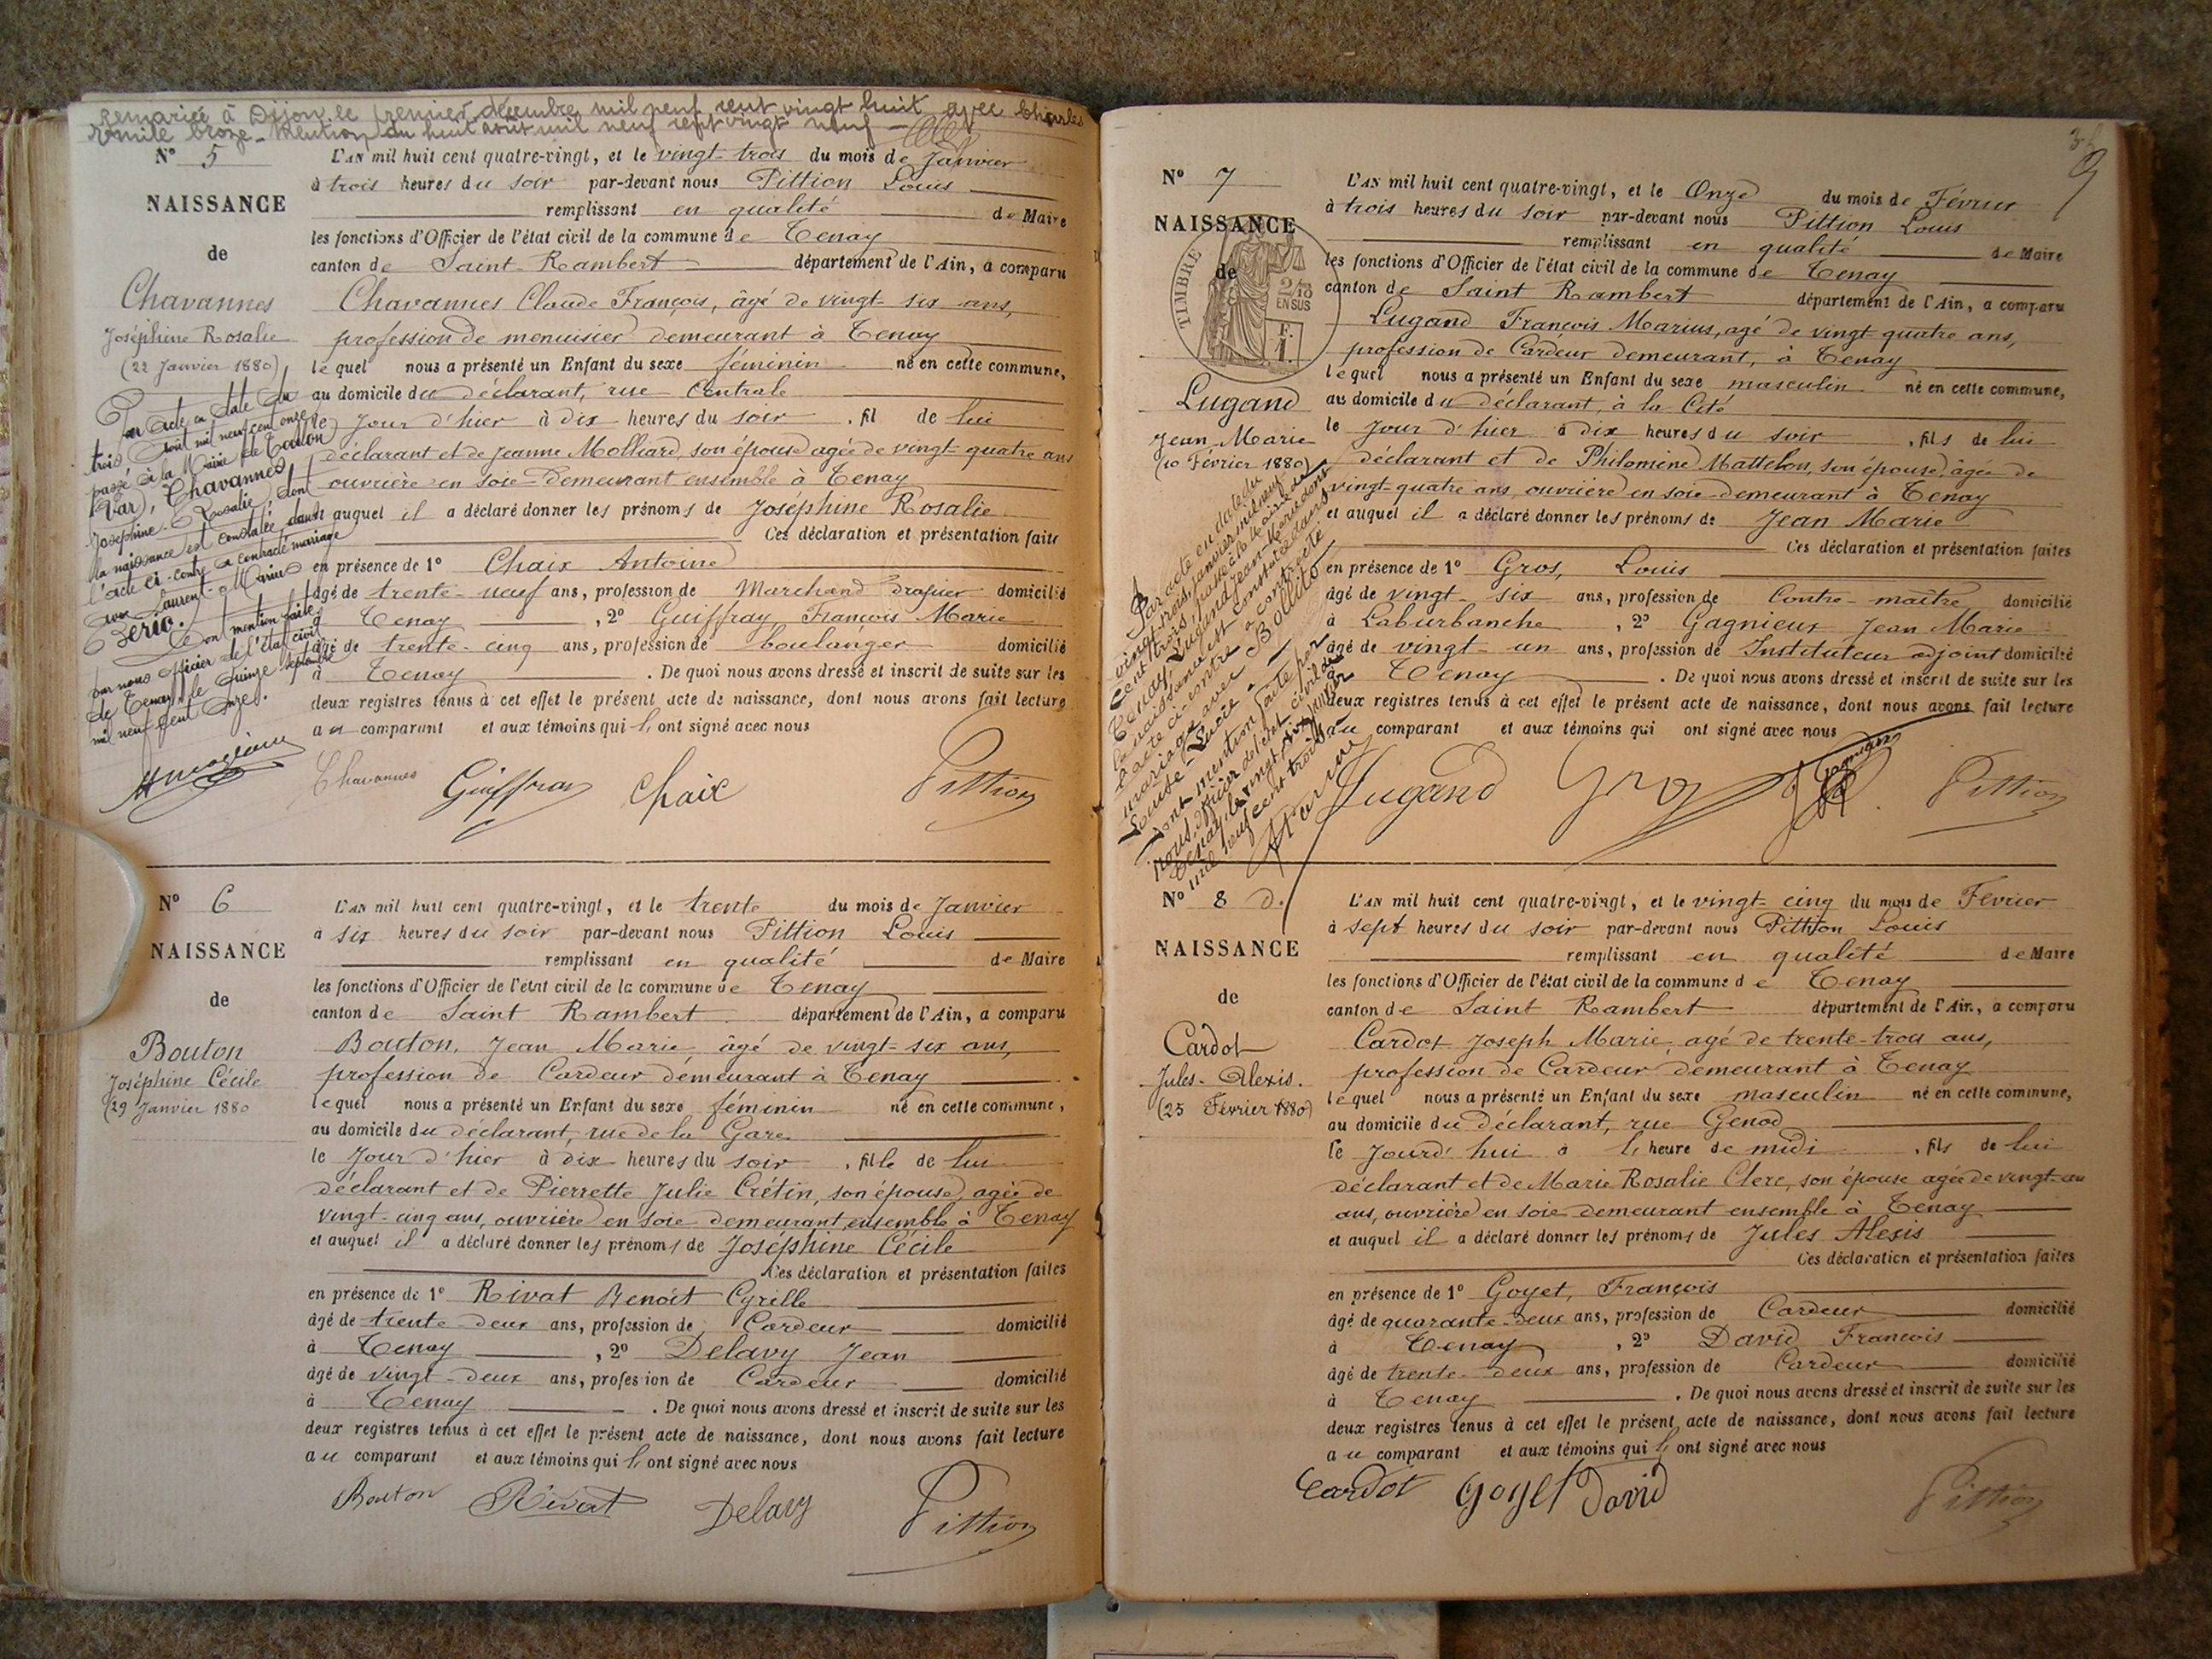 remariée à Dijon le premier décembre mil neuf cent vingt huit avec Charles
Emile Croze - Mention du huit août mil neuf cent vingt neuf -
N° 5
NAISSANCE
de
Chavannes
Joséphine Rosalie
(22 Janvier 1880)
Par acte en date du
trois Août mil neuf cent onze,
passé à la Mairie de Toulon
(Var), Chavannes
Joséphine-Rosalie, dont
la naissance est constatée dans
l'acte ci-contre a contracté mariage
avec Laurent-Marius
Zerio.
Dont mention faite
par nous officier de l'état civil
de Tenay, le quinze septembre
mil neuf cent onze.
L'AN mil huit cent quatre-vingt, et le vingt-trois du mois de Janvier
à trois heures du soir par-devant nous Pittion Louis
remplissant en qualité de Maire
les fonctions d'Officier de l'état civil de la commune de Tenay
canton de Saint-Rambert département de l'Ain, a comparu
Chavannes Claude François, âgé de vingt-six ans,
profession de menuisier demeurant à Tenay
lequel nous a présenté un Enfant du sexe féminin né en cette commune,
au domicile du déclarant, rue Centrale
le Jour d'hier à dix heures du soir , fil de lui
déclarant et de Jeanne Molliard, son épouse agée de vingt-quatre ans
ouvrière en soie demeurant ensemble à Tenay
et auquel il a déclaré donner les prénoms de Joséphine Rosalie
Ces déclaration et présentation faite
en présence de 1° Chaix Antoine
âgé de trente-neuf ans, profession de Marchand drapier domicilié
à Tenay , 2° Guiffray François Marie
âgé de trente-cinq ans, profession de boulanger domicilié
à Tenay . De quoi nous avons dressé et inscrit de suite sur les
deux registres tenus à cet effet le présent acte de naissance, dont nous avons fait lecture
au comparant et aux témoins qui l'ont signé avec nous
Chavannes Guiffray Chaix Pittion
N° 6
NAISSANCE
de
Bouton
Joséphine Cécile
(29 Janvier 1880
L'AN mil huit cent quatre-vingt, et le trente du mois de Janvier
à six heures du soir par-devant nous Pittion Louis
remplissant en qualité de Maire
les fonctions d'Officier de l'état civil de la commune de Tenay
canton de Saint Rambert département de l'Ain, a comparu
Bouton, Jean Marie, âgé de vingt-six ans,
profession de Cardeur demeurant à Tenay
lequel nous a présenté un Enfant du sexe féminin né en cette commune,
au domicile du déclarant, rue de la Gare
le Jour d'hier à dix heures du soir , fille de lui
déclarant et de Pierrette Julie Crétin, son épouse, agée de
vingt-cinq ans, ouvrière en soie demeurant ensemble à Tenay
et auquel il a déclaré donner les prénoms de Joséphine Cécile
Ces déclaration et présentation faites
en présence de 1° Rivat Benoit Cyrille
âgé de trente-deux ans, profession de Cardeur domicilié
à Tenay , 2° Delavy Jean
âgé de vingt-deux ans, profession de Cardeur domicilié
à Tenay . De quoi nous avons dressé et inscrit de suite sur les
deux registres tenus à cet effet le présent acte de naissance, dont nous avons fait lecture
au comparant et aux témoins qui l'ont signé avec nous
Bouton Rivat Delavy Pittion
9
N° 7
NAISSANCE
de
TIMBRE
2/10
EN SUS
F.
1.
Lugand
Jean Marie
(10 Février 1880)
Par acte en date du
vingt-trois Janvier mil neuf
cent trois, passé à la mairie de
Tenay, Lugand Jean-Marie dont
la naissance est constatée dans
l'acte ci-contre a contracté
mariage avec Bollito
Louise-Lucie.
Dont mention faite par
nous officier de l'état civil de
Tenay, le vingt-six Janvier
mil neuf cent trois.
L'AN mil huit cent quatre-vingt, et le Onze du mois de Février
à trois heures du soir par-devant nous Pittion Louis
remplissant en qualité de Maire
les fonctions d'Officier de l'état civil de la commune de Tenay
canton de Saint Rambert département de l'Ain, a comparu
Lugand François Marius, agé de vingt quatre ans,
profession de Cardeur demeurant, à Tenay
lequel nous a présenté un Enfant du sexe masculin né en cette commune,
au domicile du déclarant, à la Cité
le Jour d'hier à dix heures du soir , fils de lui
déclarant et de Philomène Mattelon, son épouse, âgée de
vingt-quatre ans, ouvrière en soie demeurant à Tenay
et auquel il a déclaré donner les prénoms de Jean Marie
Ces déclaration et présentation faites
en présence de 1° Gros, Louis
âgé de vingt-six ans, profession de Contre-maître domicilié
à Laburbanche , 2° Gagnieux Jean Marie
âgé de vingt-un ans, profession de Instituteur adjoint domicilié
à Tenay . De quoi nous avons dressé et inscrit de suite sur les
deux registres tenus à cet effet le présent acte de naissance, dont nous avons fait lecture
au comparant et aux témoins qui ont signé avec nous
Lugand Gros Pittion
N° 8 D.
NAISSANCE
de
Cardot
Jules-Alexis.
(25 Février 1880)
L'AN mil huit cent quatre-vingt, et le vingt-cinq du mois de Février
à sept heures du soir par-devant nous Pittion Louis
remplissant en qualité de Maire
les fonctions d'Officier de l'état civil de la commune de Tenay
canton de Saint Rambert département de l'Ain, a comparu
Cardot Joseph Marie, agé de trente-trois ans,
profession de Cardeur demeurant à Tenay
lequel nous a présenté un Enfant du sexe masculin né en cette commune,
au domicile du déclarant, rue Genod
le Jourd'hui à l' heure de midi , fils de lui
déclarant et de Marie Rosalie Clerc, son épouse agée de vingt-un
ans, ouvrière en soie demeurant ensemble à Tenay
et auquel il a déclaré donner les prénoms de Jules Alexis
Ces déclaration et présentation faites
en présence de 1° Goyet, François
âgé de quarante-deux ans, profession de Cardeur domicilié
à Tenay , 2° David François
âgé de trente-deux ans, profession de Cardeur domicilié
à Tenay . De quoi nous avons dressé et inscrit de suite sur les
deux registres tenus à cet effet le présent acte de naissance, dont nous avons fait lecture
au comparant et aux témoins qui l'ont signé avec nous
Cardot Goyet David Pittion